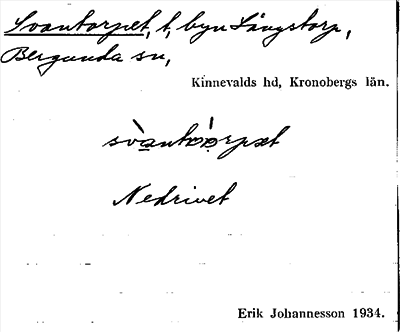 Svantorpet, t, byn Långstorp,
Bergunda sn,
Kinnevalds hd, Kronobergs län.
svàntóorpæt
Nedrivet
Erik Johannesson 1934.